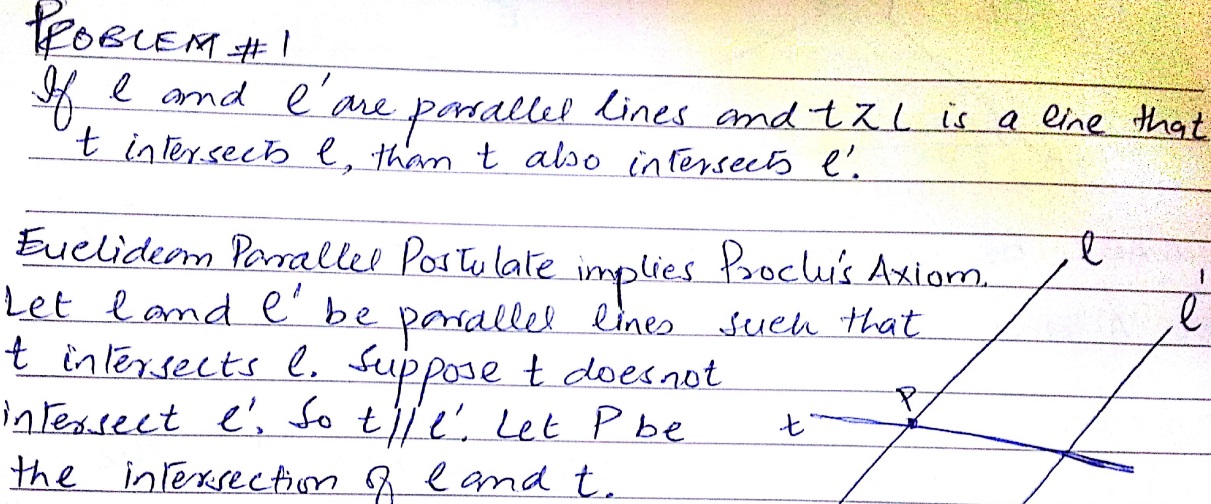 PROBLEM # 1
If l and l' are parallel lines and t ≠ l is a line that
t intersects l, than t also intersects l'.
Euclidean Parallel Postulate implies Proclu's Axiom.
Let l and l' be parallel lines such that
t intersects l. Suppose t doesnot
intersect l'. So t // l'. Let P be
the intersection of l and t.
l
l'
P
t